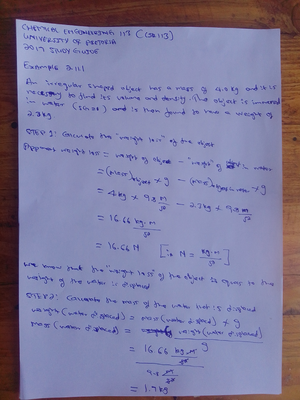 CHEMICAL ENGINEERING 113 (CSB113)
UNIVERSITY OF PRETORIA
2017 STUDY GUIDE
Example 3.11.1
An irregular shaped object has a mass of 4.0 kg and it is
necessary to find its volume and density. The object is immersed
in water (SG=1) and is then found to have a weight of
2.3kg
STEP 1: Calculate the "weight loss" of the object
Apparent weight loss = weight of object - "weight" of in water
= (mass)object × g - (mass)object in water × g
= 4kg × 9.8 m/s² - 2.3kg × 9.8 m/s²
= 16.66 kg.m/s²
= 16.66 N [ie N = kg.m/s²]
We know that the "weight loss" of the object is equal to the
weight of the water is displaced
STEP 2: Calculate the mass of the water that is displaced
Weight (water displaced) = mass (water displaced) × g
mass (water displaced) = weight (water displaced)/g
= 16.66 kg.m/s²
9.8 m/s²
= 1.7kg